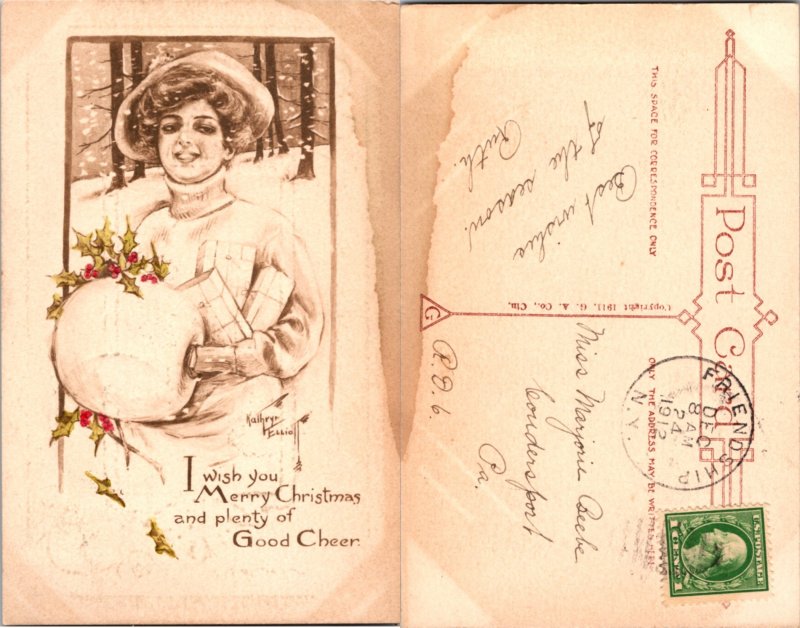 Kathryn
Elliott
I wish you
Merry Christmas
and plenty of
Good Cheer.
Post Card
THIS SPACE FOR CORRESPONDENCE ONLY
ONLY THE ADDRESS MAY BE WRITTEN HERE
Copyright 1911, G. A. Co., Cin.
G
Best wishes
of the season
Ruth.
Miss Marjorie Beebe
Coudersport
Pa.
R.D.6.
FRIENDSHIP
DEC 24
8 AM
1912
N.Y.
U.S. POSTAGE
1 CENT 1